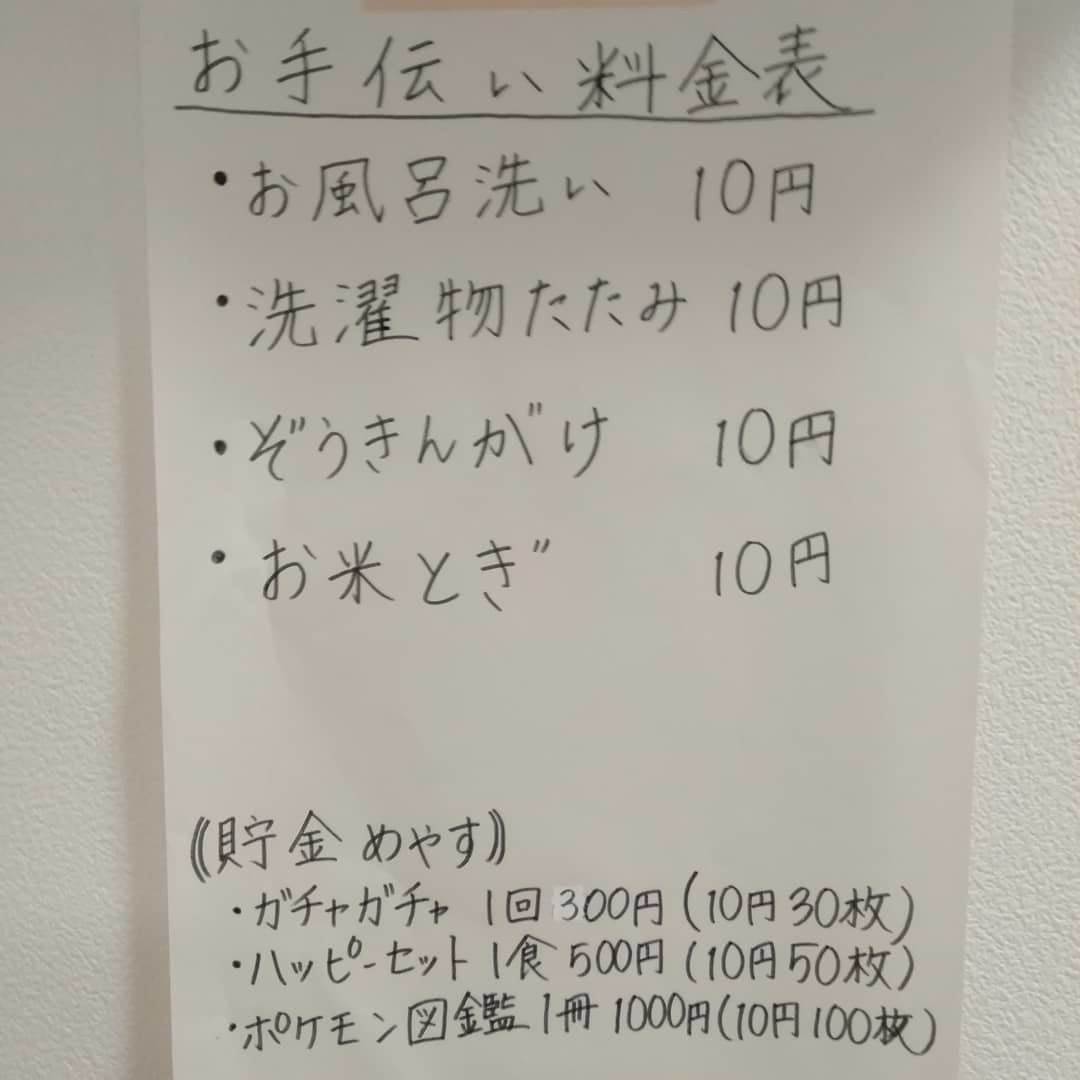 お手伝い料金表
・お風呂洗い 10円
・洗濯物たたみ 10円
・ぞうきんがけ 10円
・お米とぎ 10円
⸨貯金めやす⸩
・ガチャガチャ 1回 300円(10円30枚)
・ハッピーセット 1食 500円(10円50枚)
・ポケモン図鑑 1冊 1000円(10円100枚)